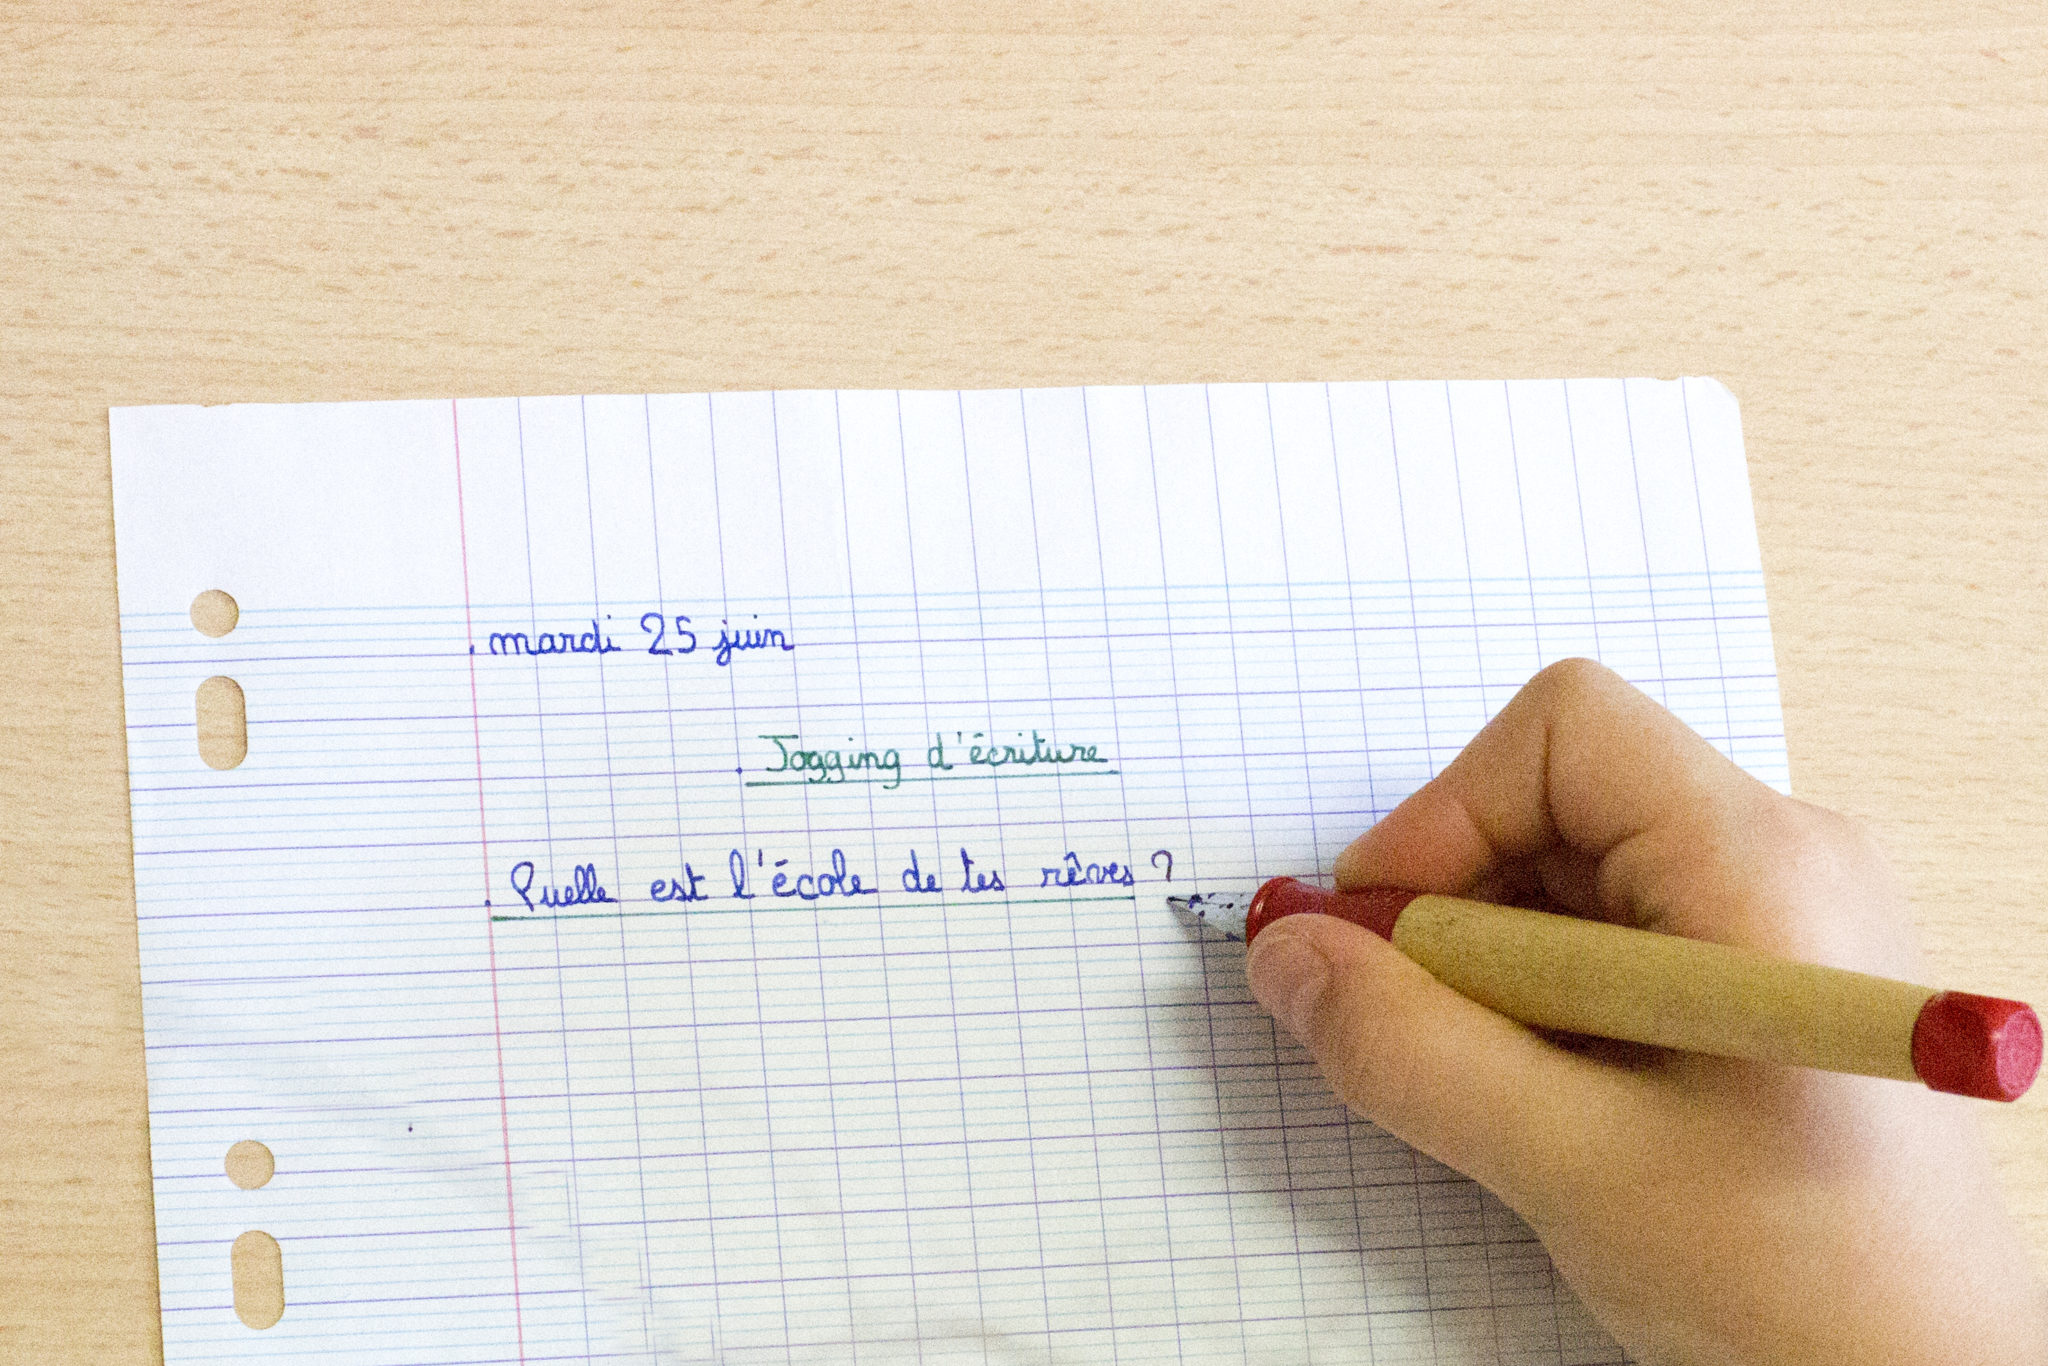 mardi 25 juin
Jogging d'écriture
Quelle est l'école de tes rêves ?